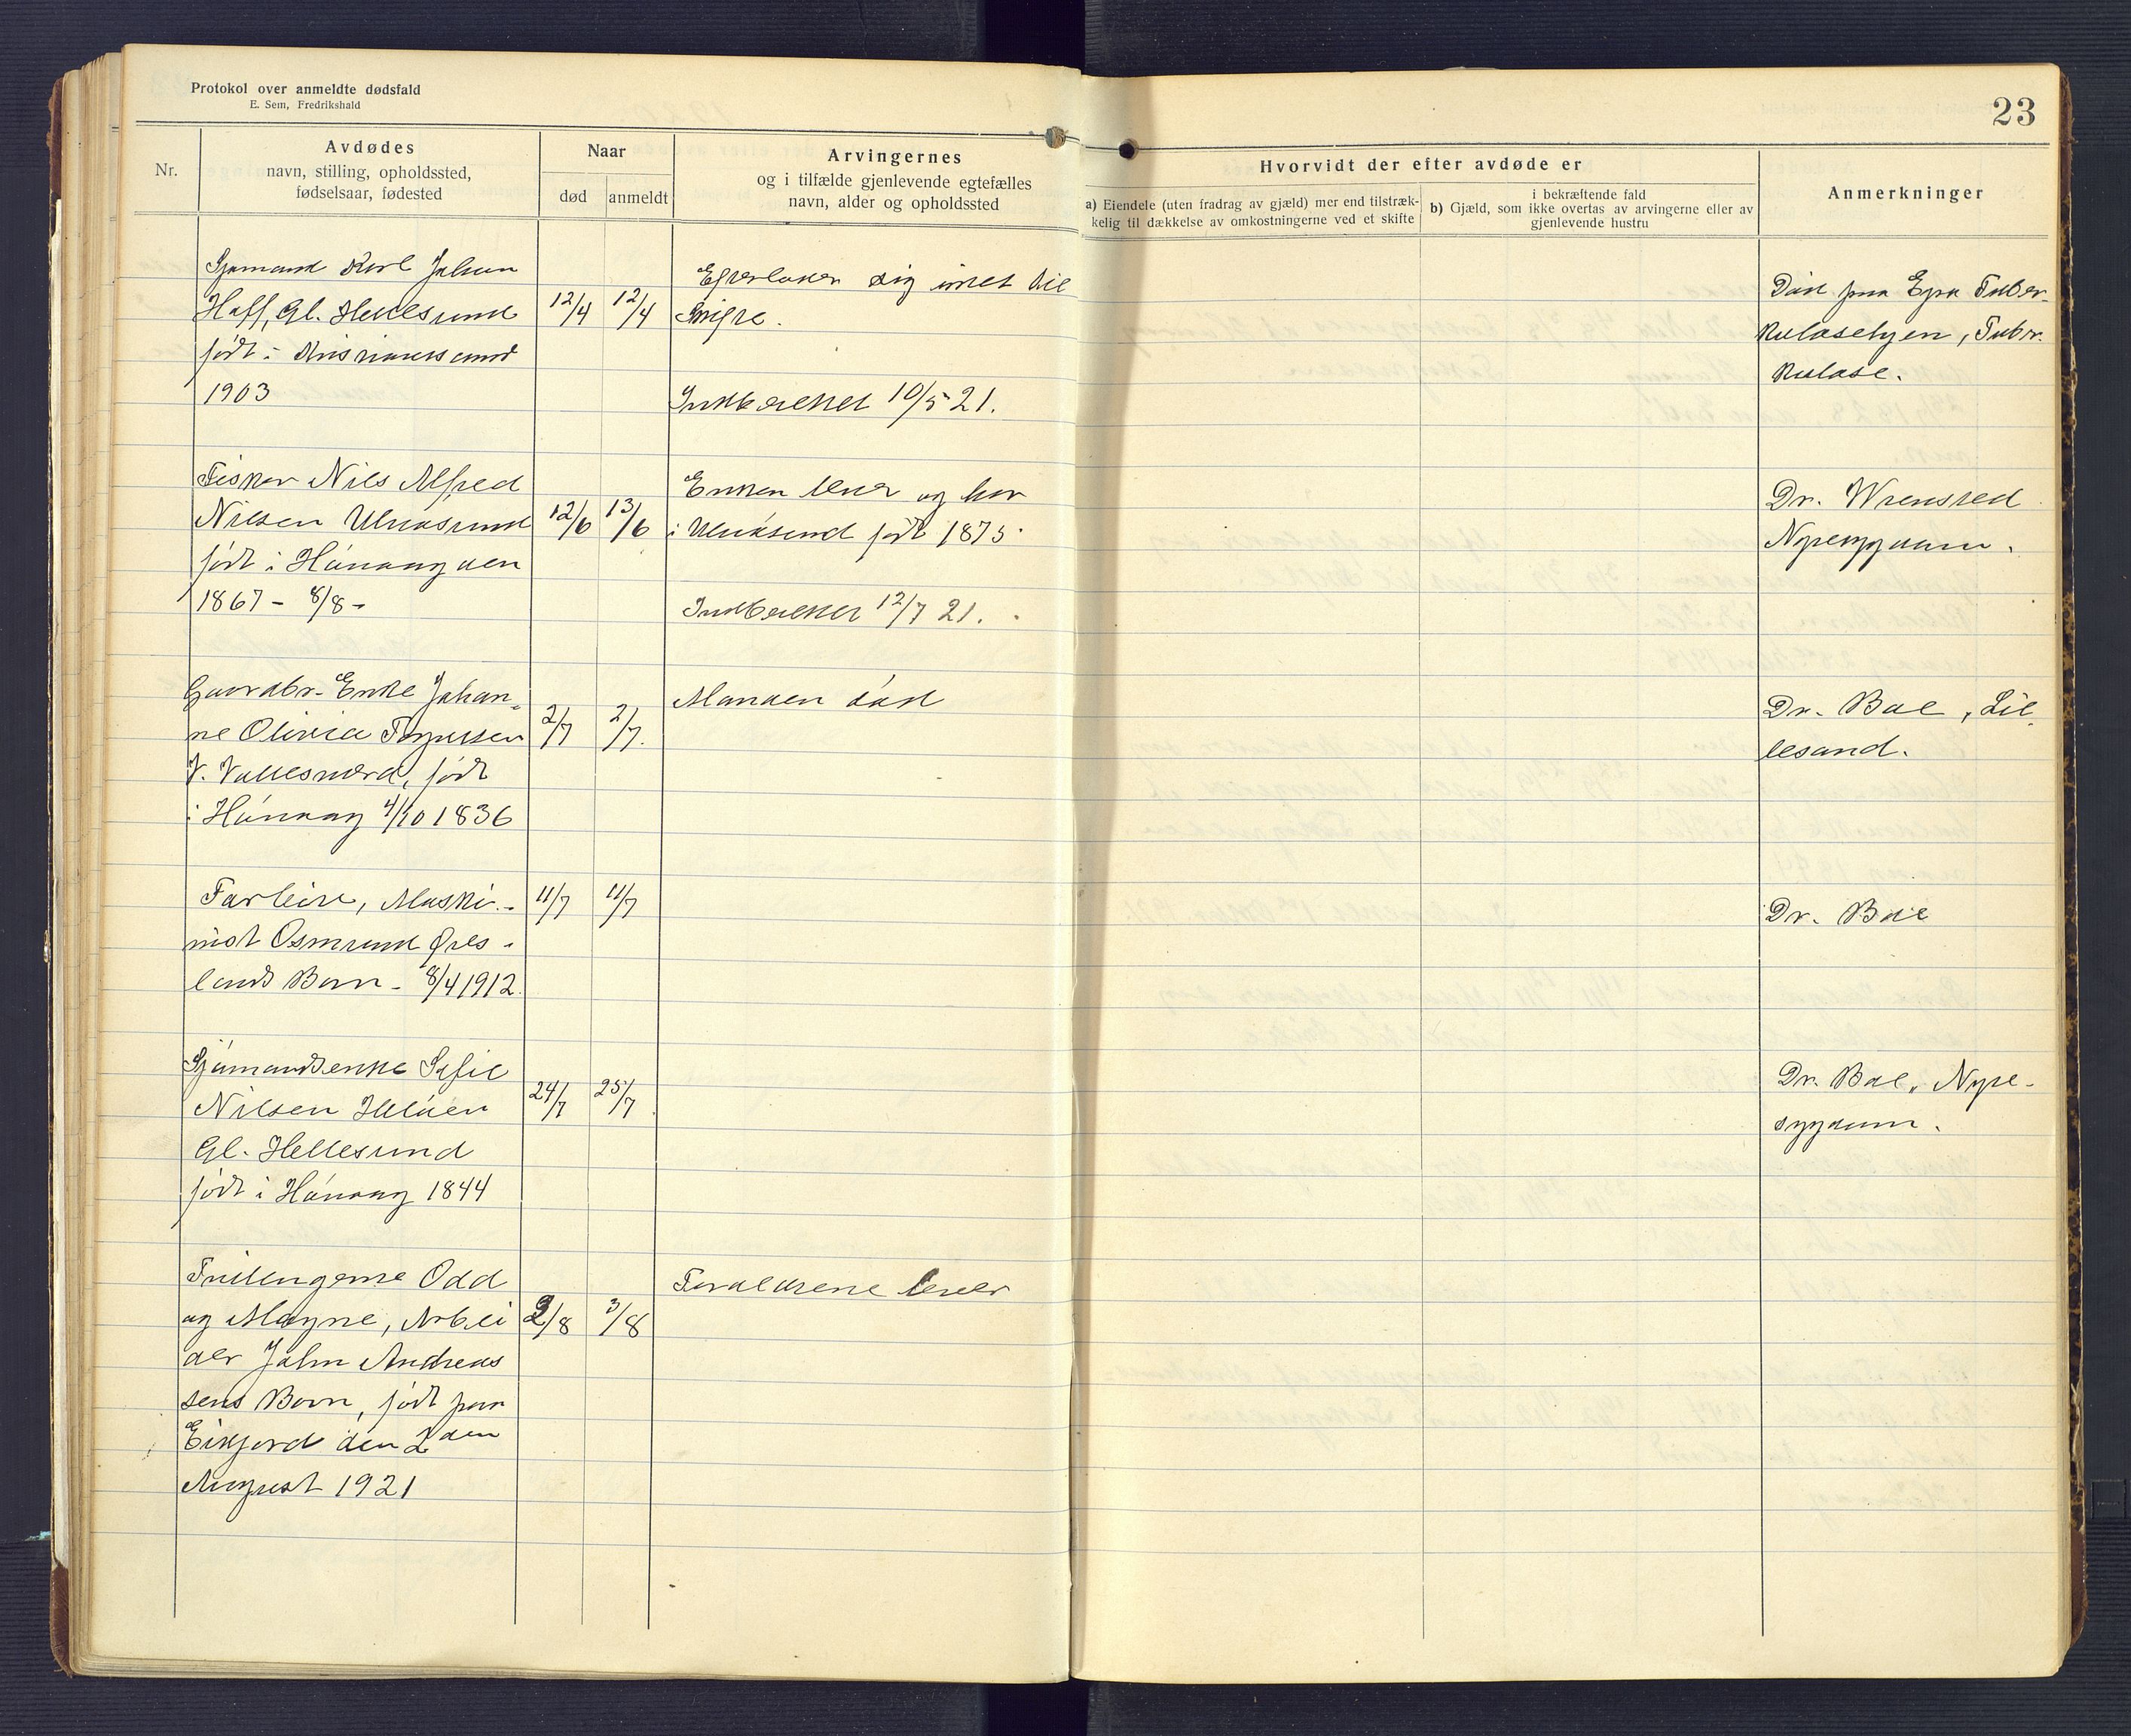 Protokol over anmeldte dødsfald
E. Sem, Fredrikshald
23
Nr.
Avdødes
navn, stilling, opholdssted,
fødselsaar, fødested
Naar
død
anmeldt
Arvingernes
og i tilfælde gjenlevende egtefælles
navn, alder og opholdssted
Hvorvidt der efter avdøde er
a) Eiendele (uten fradrag av gjæld) mer end tilstræk-
kelig til dækkelse av omkostningerne ved et skifte
i bekræftende fald
b) Gjæld, som ikke overtas av arvingerne eller av
gjenlevende hustru
Anmerkninger
Sjømand Karl Johan
Hoff, Gl. Hellesund
født i Kristianssund
1903
12/4
12/4
Efterlater sig intet til
Skifte.
Indberettet 10/5 21.
Død paa Egra Tuber-
kulosehjem, Tuber-
kulose.
Fisker Nils Alfred
Nilsen Ulvøsund
født i Høvaag den
1867 - 8/8 -
12/6
13/6
Enken lever og bor
i Ulvøsund født 1875.
Indberettet 12/7 21.
Dr. Wrensted
Nyresygdom.
Gaardbr. Enke Johan-
ne Olivia Terjussen
V. Vallesværd, født
i Høvaag 4/10 1836
2/7
2/7.
Manden død
Dr. Boe, Lil-
lesand.
Maski-
nist Osmund
lands Barn - 8/4 1912.
11/7
11/7
Dr. Boe
Sjømandsenke Sofie
Nilsen
Gl. Hellesund
født i Høvaag 1844
24/7
25/7
Dr. Boe, Nyre-
sygdom.
Tvillingerne Odd
og Magne, Arbei
der John Andreas
sens Barn, født paa
Eikjord den 2den
August 1921
2/8
3/8
Forældrene lever